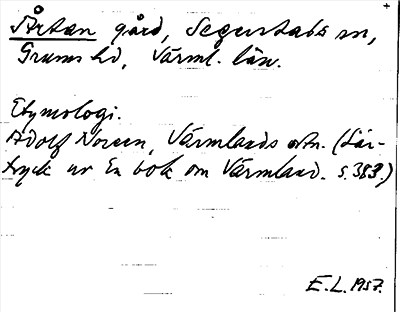 Årtan gård, Segerstads sn,
Grums hd, Värml. län.
Etymologi.
Adolf Noreen, Värmlands ortn. (Sär-
tryck ur En bok om Värmland. s. 383.)
E.L. 1957.